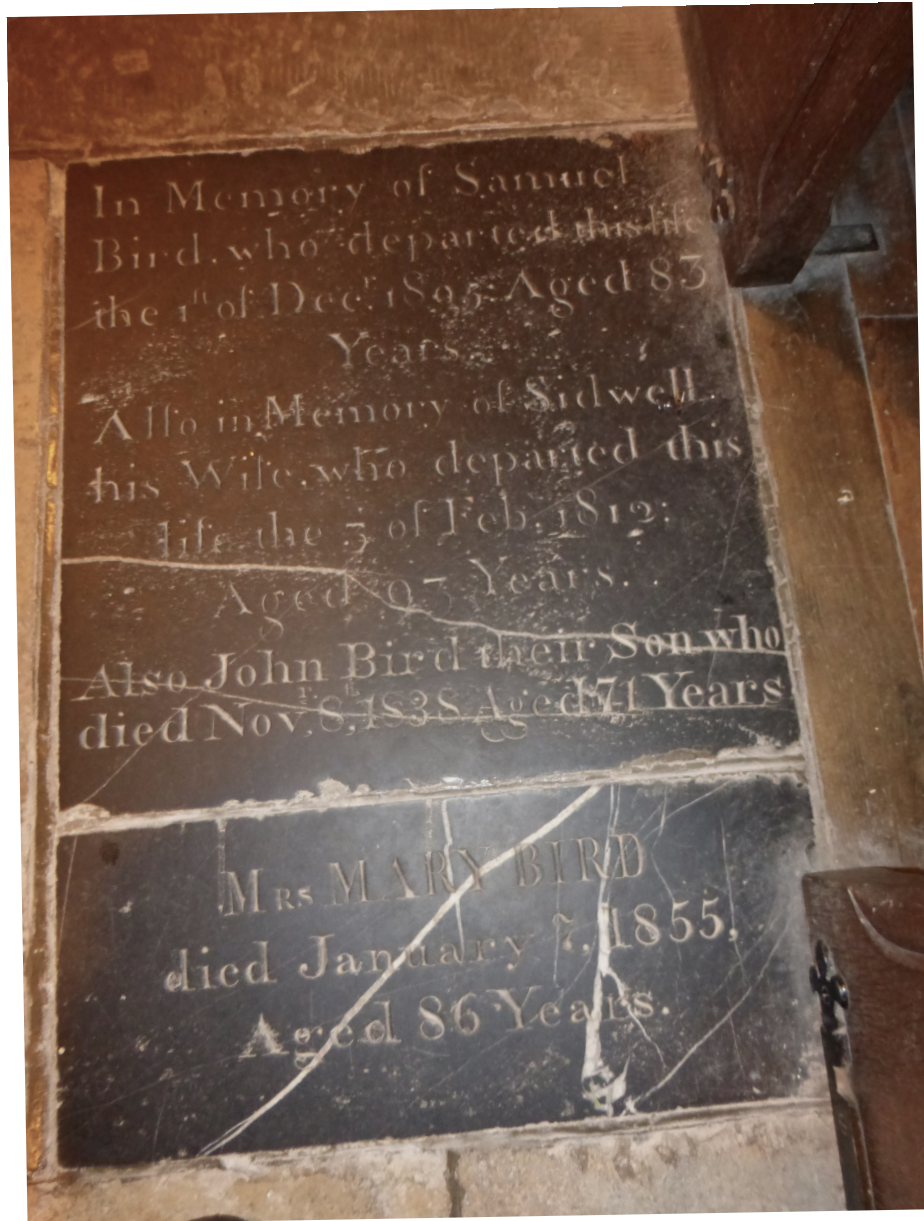 In Memory of Samuel
Bird, who departed this life
the 1st of Decr. 1805: Aged 83
Years.
Alſo in Memory of Sidwell
his Wife, who departed this
life the 3 of Feb. 1812:
Aged 93 Years.
Also John Bird their Son who
died Novr. 8th, 1838 Aged 71 Years
MRS MARY BIRD
died January 7, 1855,
Aged 86 Years.